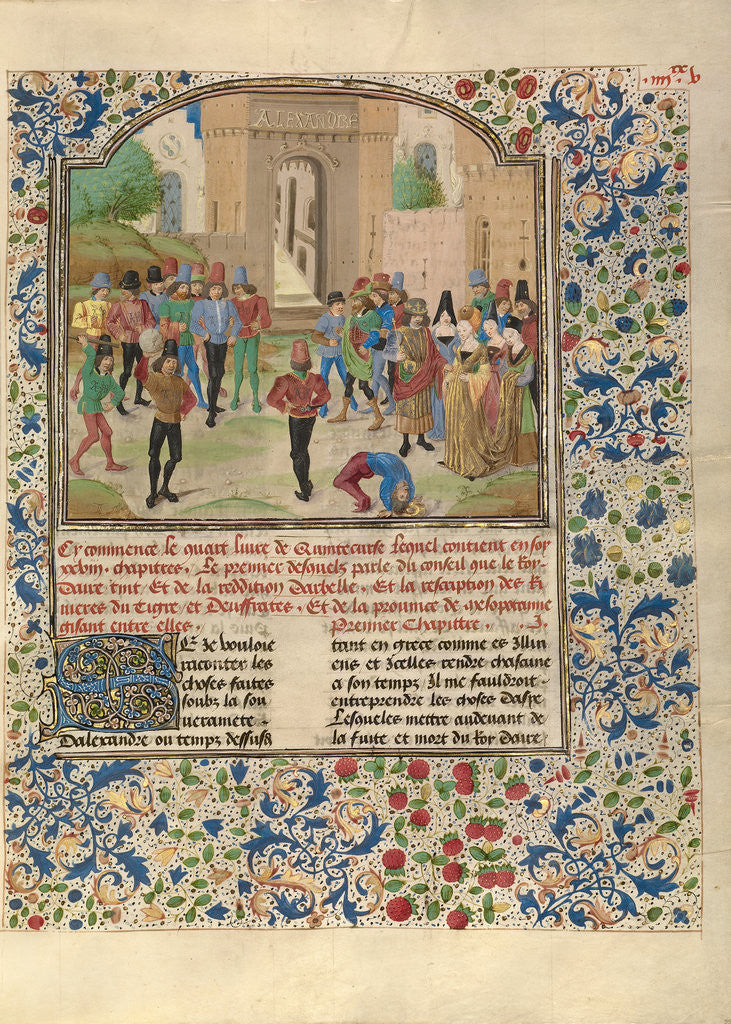 ALEXANDRE
Cy commence le quart livre de Quintecurse lequel contient en soy
xxviii. chapitres. Le premier desquels parle du conseil que le Roy
Daire tint Et de la reddition Darbelle. Et la rescription des Ri
uieres du Tigre et Deuffrates. Et de la prouince de mesopotamie
gisant entre elles. Premier Chapittre. I.
SE Je vouloie
raconter les
choses faites
soubz la sou
ueraineté
Dalexandre ou temps dessusd
tant en grece comme es Illiri
ens et Icelles rendre chascune
a son temps Il me fauldroit
entreprendre les choses dasie
Lesqueles mettre audeuant de
la fuite et mort du Roy Daire